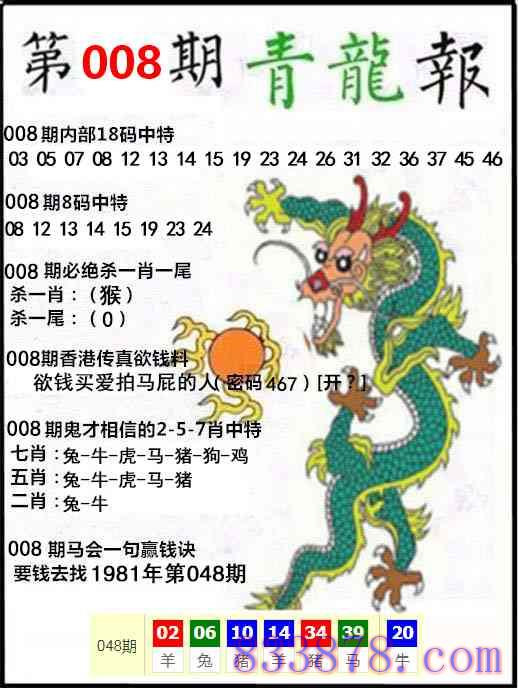 第008期青龍報
008期内部18码中特
03 05 07 08 12 13 14 15 19 23 24 26 31 32 36 37 45 46
008期8码中特
08 12 13 14 15 19 23 24
008 期必绝杀一肖一尾
杀一肖：（猴）
杀一尾：（0）
008期香港传真欲钱料
欲钱买爱拍马屁的人(密码467)[开？]
008期鬼才相信的2-5-7肖中特
七肖：兔-牛-虎-马-猪-狗-鸡
五肖：兔-牛-虎-马-猪
二肖：兔-牛
008 期马会一句赢钱诀
要钱去找1981年第048期
048期 02 06 10 14 34 39 20
羊 兔 猪 羊 猪 马 牛
833878.com